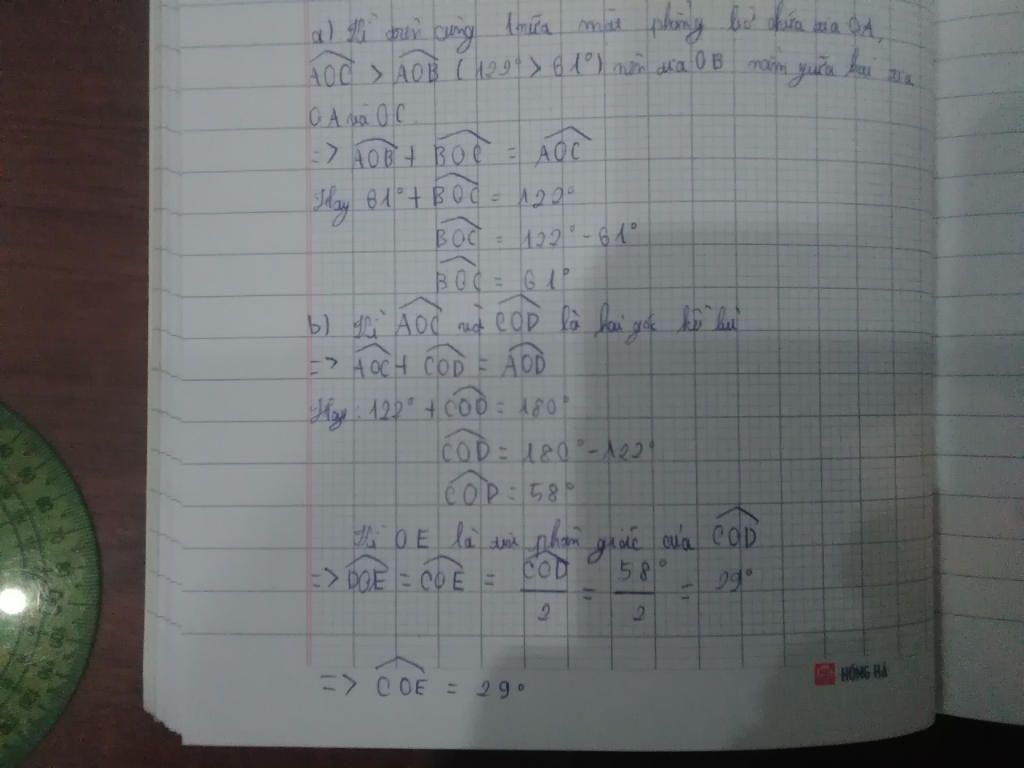 a) Vì trên cùng 1 nửa mặt phẳng bờ chứa tia OA,
AOC > AOB ( 122° > 61° ) nên tia OB nằm giữa hai tia
OA và OC
=> AOB + BOC = AOC
Hay 61° + BOC = 122°
BOC = 122° - 61°
BOC = 61°
b) Vì AOC và COD là hai góc kề bù
=> AOC + COD = AOD
Hay : 122° + COD = 180°
COD = 180° - 122°
COD = 58°
Vì OE là tia phân giác của COD
=> DOE = COE = COD/2 = 58°/2 = 29°
=> COE = 29°
HỒNG HÀ